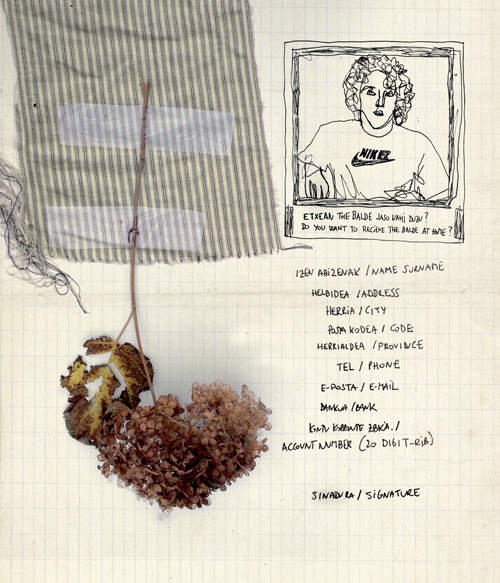 NIKEZ
ETXEAN THE BALDE JASO NAHI DUZU?
DO YOU WANT TO RECIEVE THE BALDE AT HOME?
IZEN ABIZENAK / NAME SURNAME
HELBIDEA / ADDRESS
HERRIA / CITY
POSTA KODEA / CODE
HERRIALDEA / PROVINCE
TEL / PHONE
E-POSTA / E-MAIL
BANKUA / BANK
KONTU KORRONTE ZBKIA. /
ACCOUNT NUMBER (20 DIGIT-RIB)
SINADURA / SIGNATURE